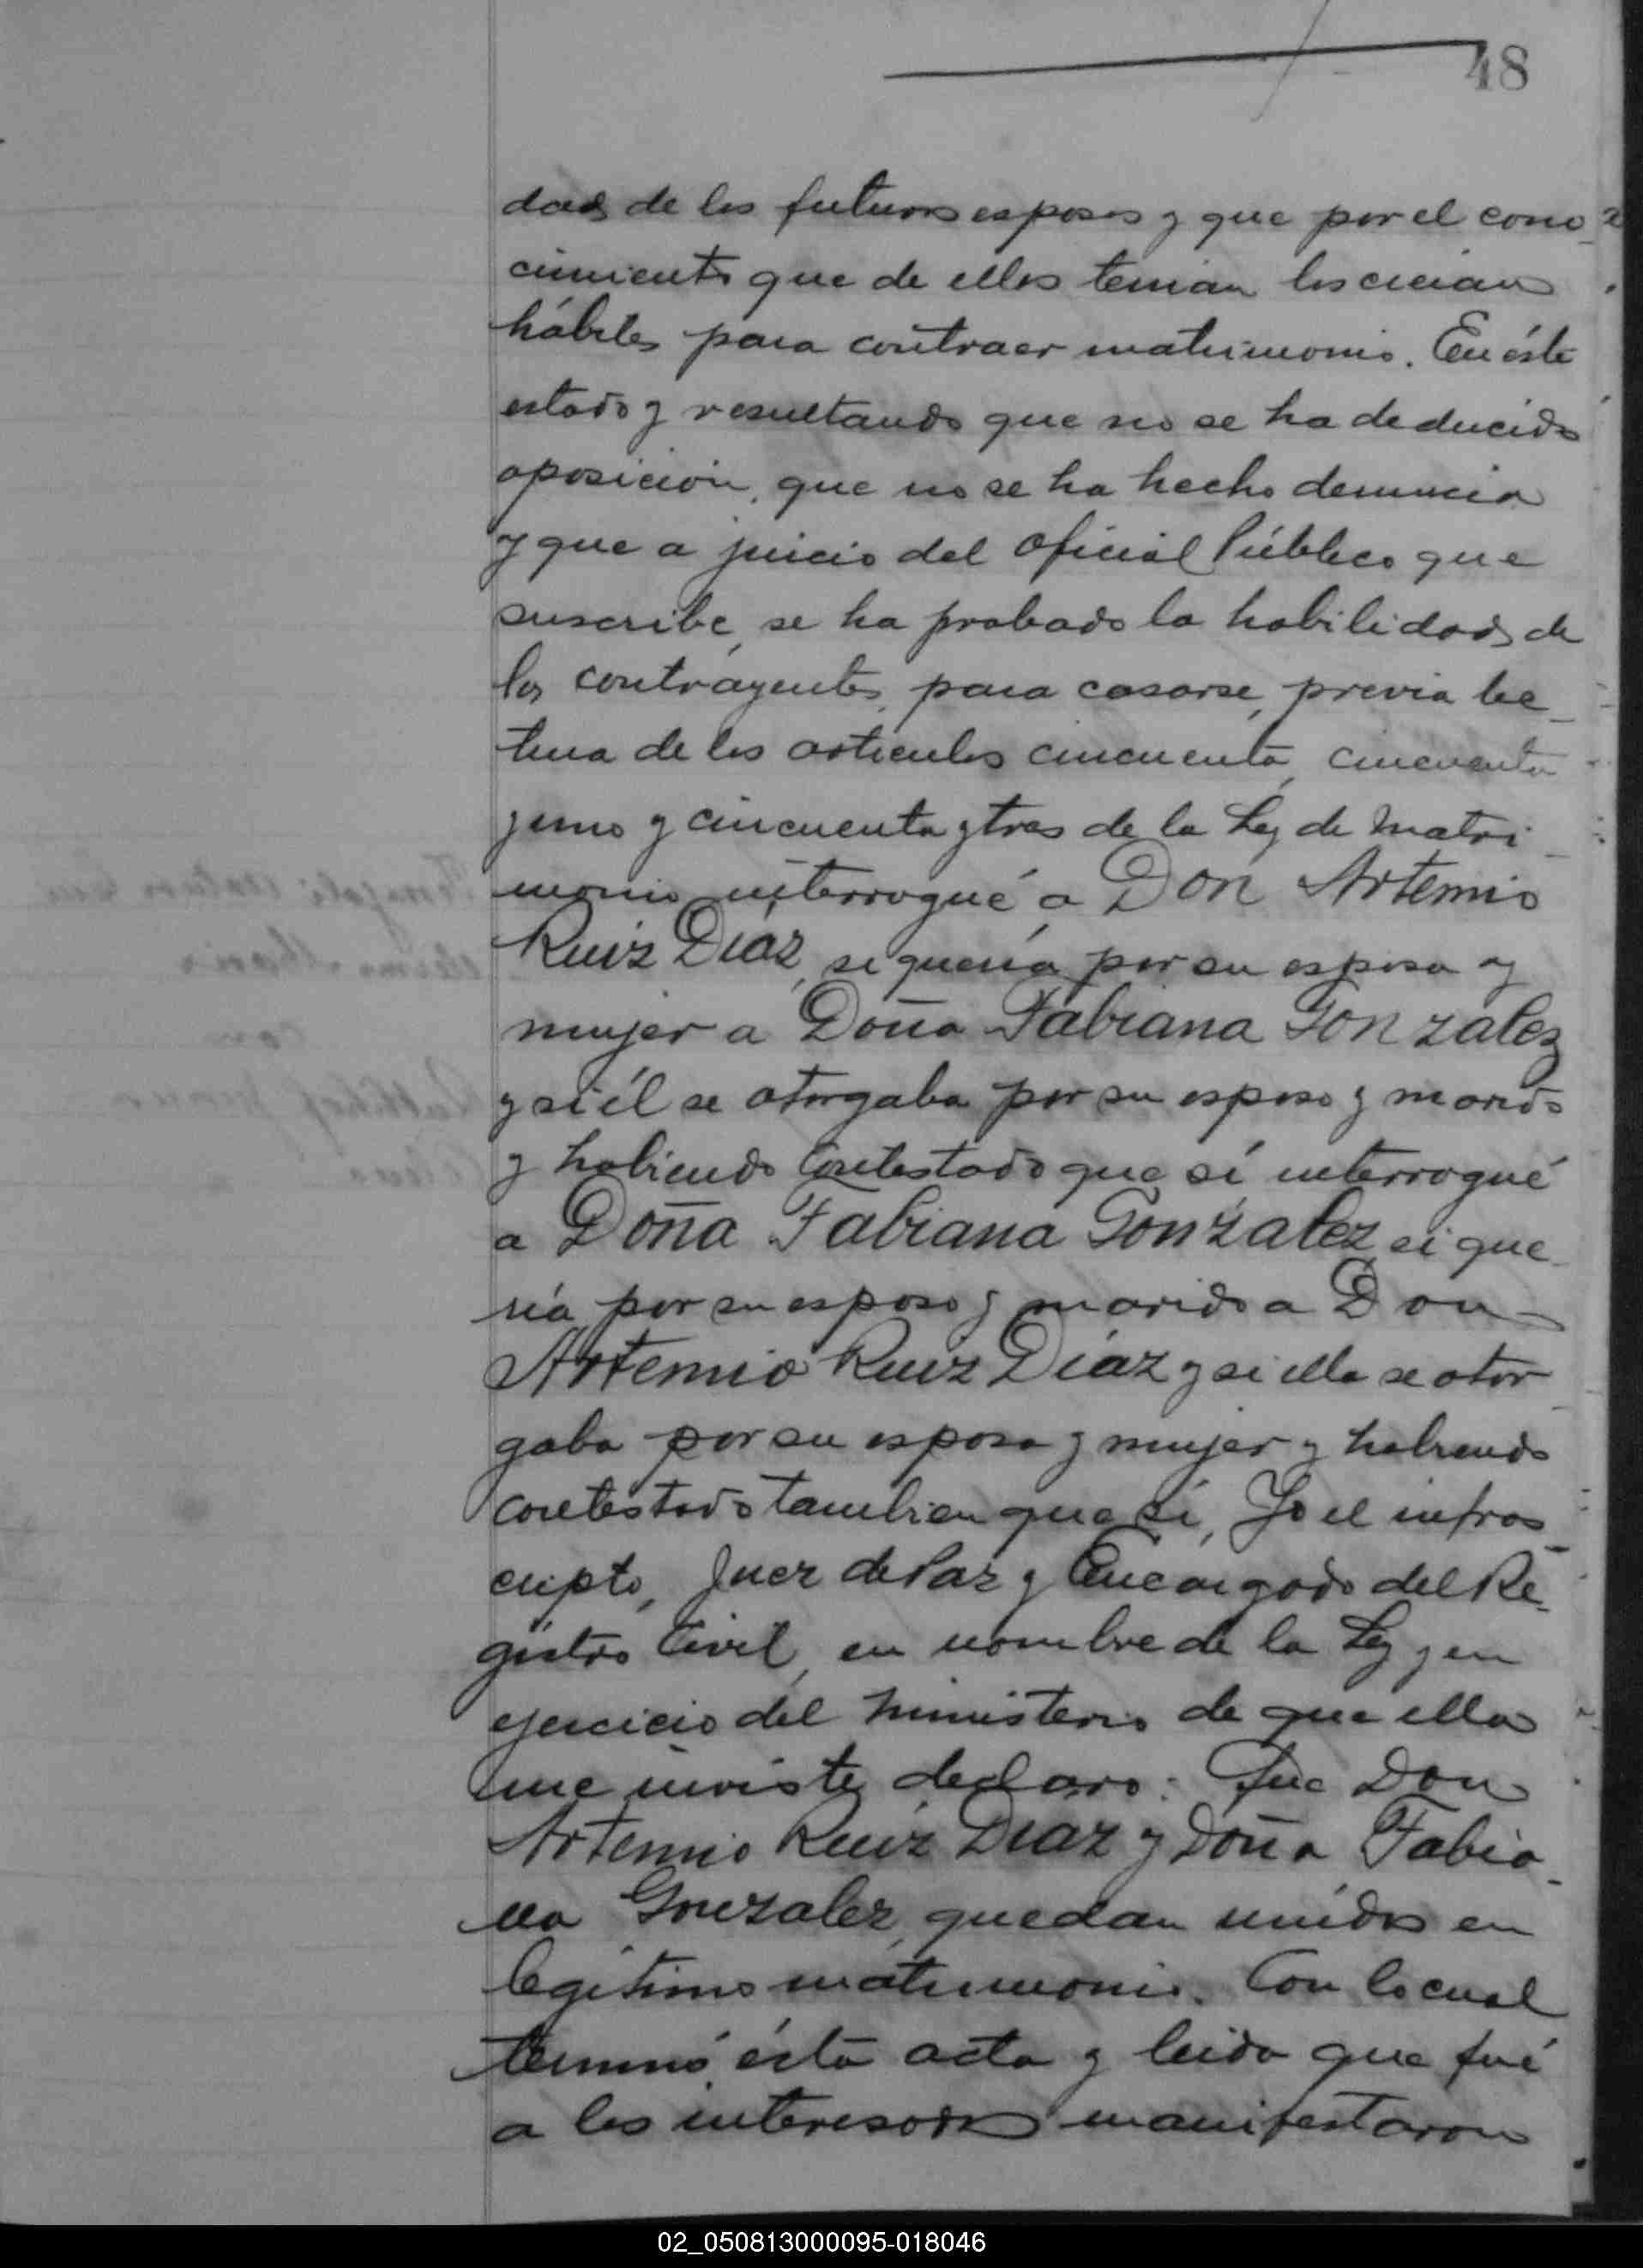 48
dad de los futuros esposos y que por el cono_
cimiento que de ellos tenian los creian
hábiles para contraer matrimonio. En éste
estado y resultando que no se ha deducido
oposición, que no se ha hecho denuncia
y que a juicio del Oficial Público que
suscribe, se ha probado la habilidad de
los contrayentes, para casarse, previa lec_
tura de los articulos cincuenta, cincuenta
y uno y cincuenta y tres de la Ley de Matri_
monio interrogué a Don Artemio
Ruiz Diaz, si queria por su esposa y
mujer a Doña Fabiana Gonzalez
y si él se otorgaba por su esposo y marido
y habiendo contestado que sí interrogué
a Doña Fabiana Gonzalez si que_
ría por su esposo y marido a Don
Artemio Ruiz Díaz y si ella se otor_
gaba por su esposa y mujer y habiendo
contestado tambien que sí, Yo el infras_
cripto, Juez de Paz y Encargado del Re_
gistro Civil, en nombre de la Ley y en
ejercicio del Ministerio de que ella
me inviste declaro: Que Don
Artemio Ruiz Diaz y Doña Fabia_
na Gonzalez, quedan unidos en
legitimo matrimonio. Con lo cual
terminó ésta acta y leida que fué
a los interesados manifestaron
02_050813000095-018046